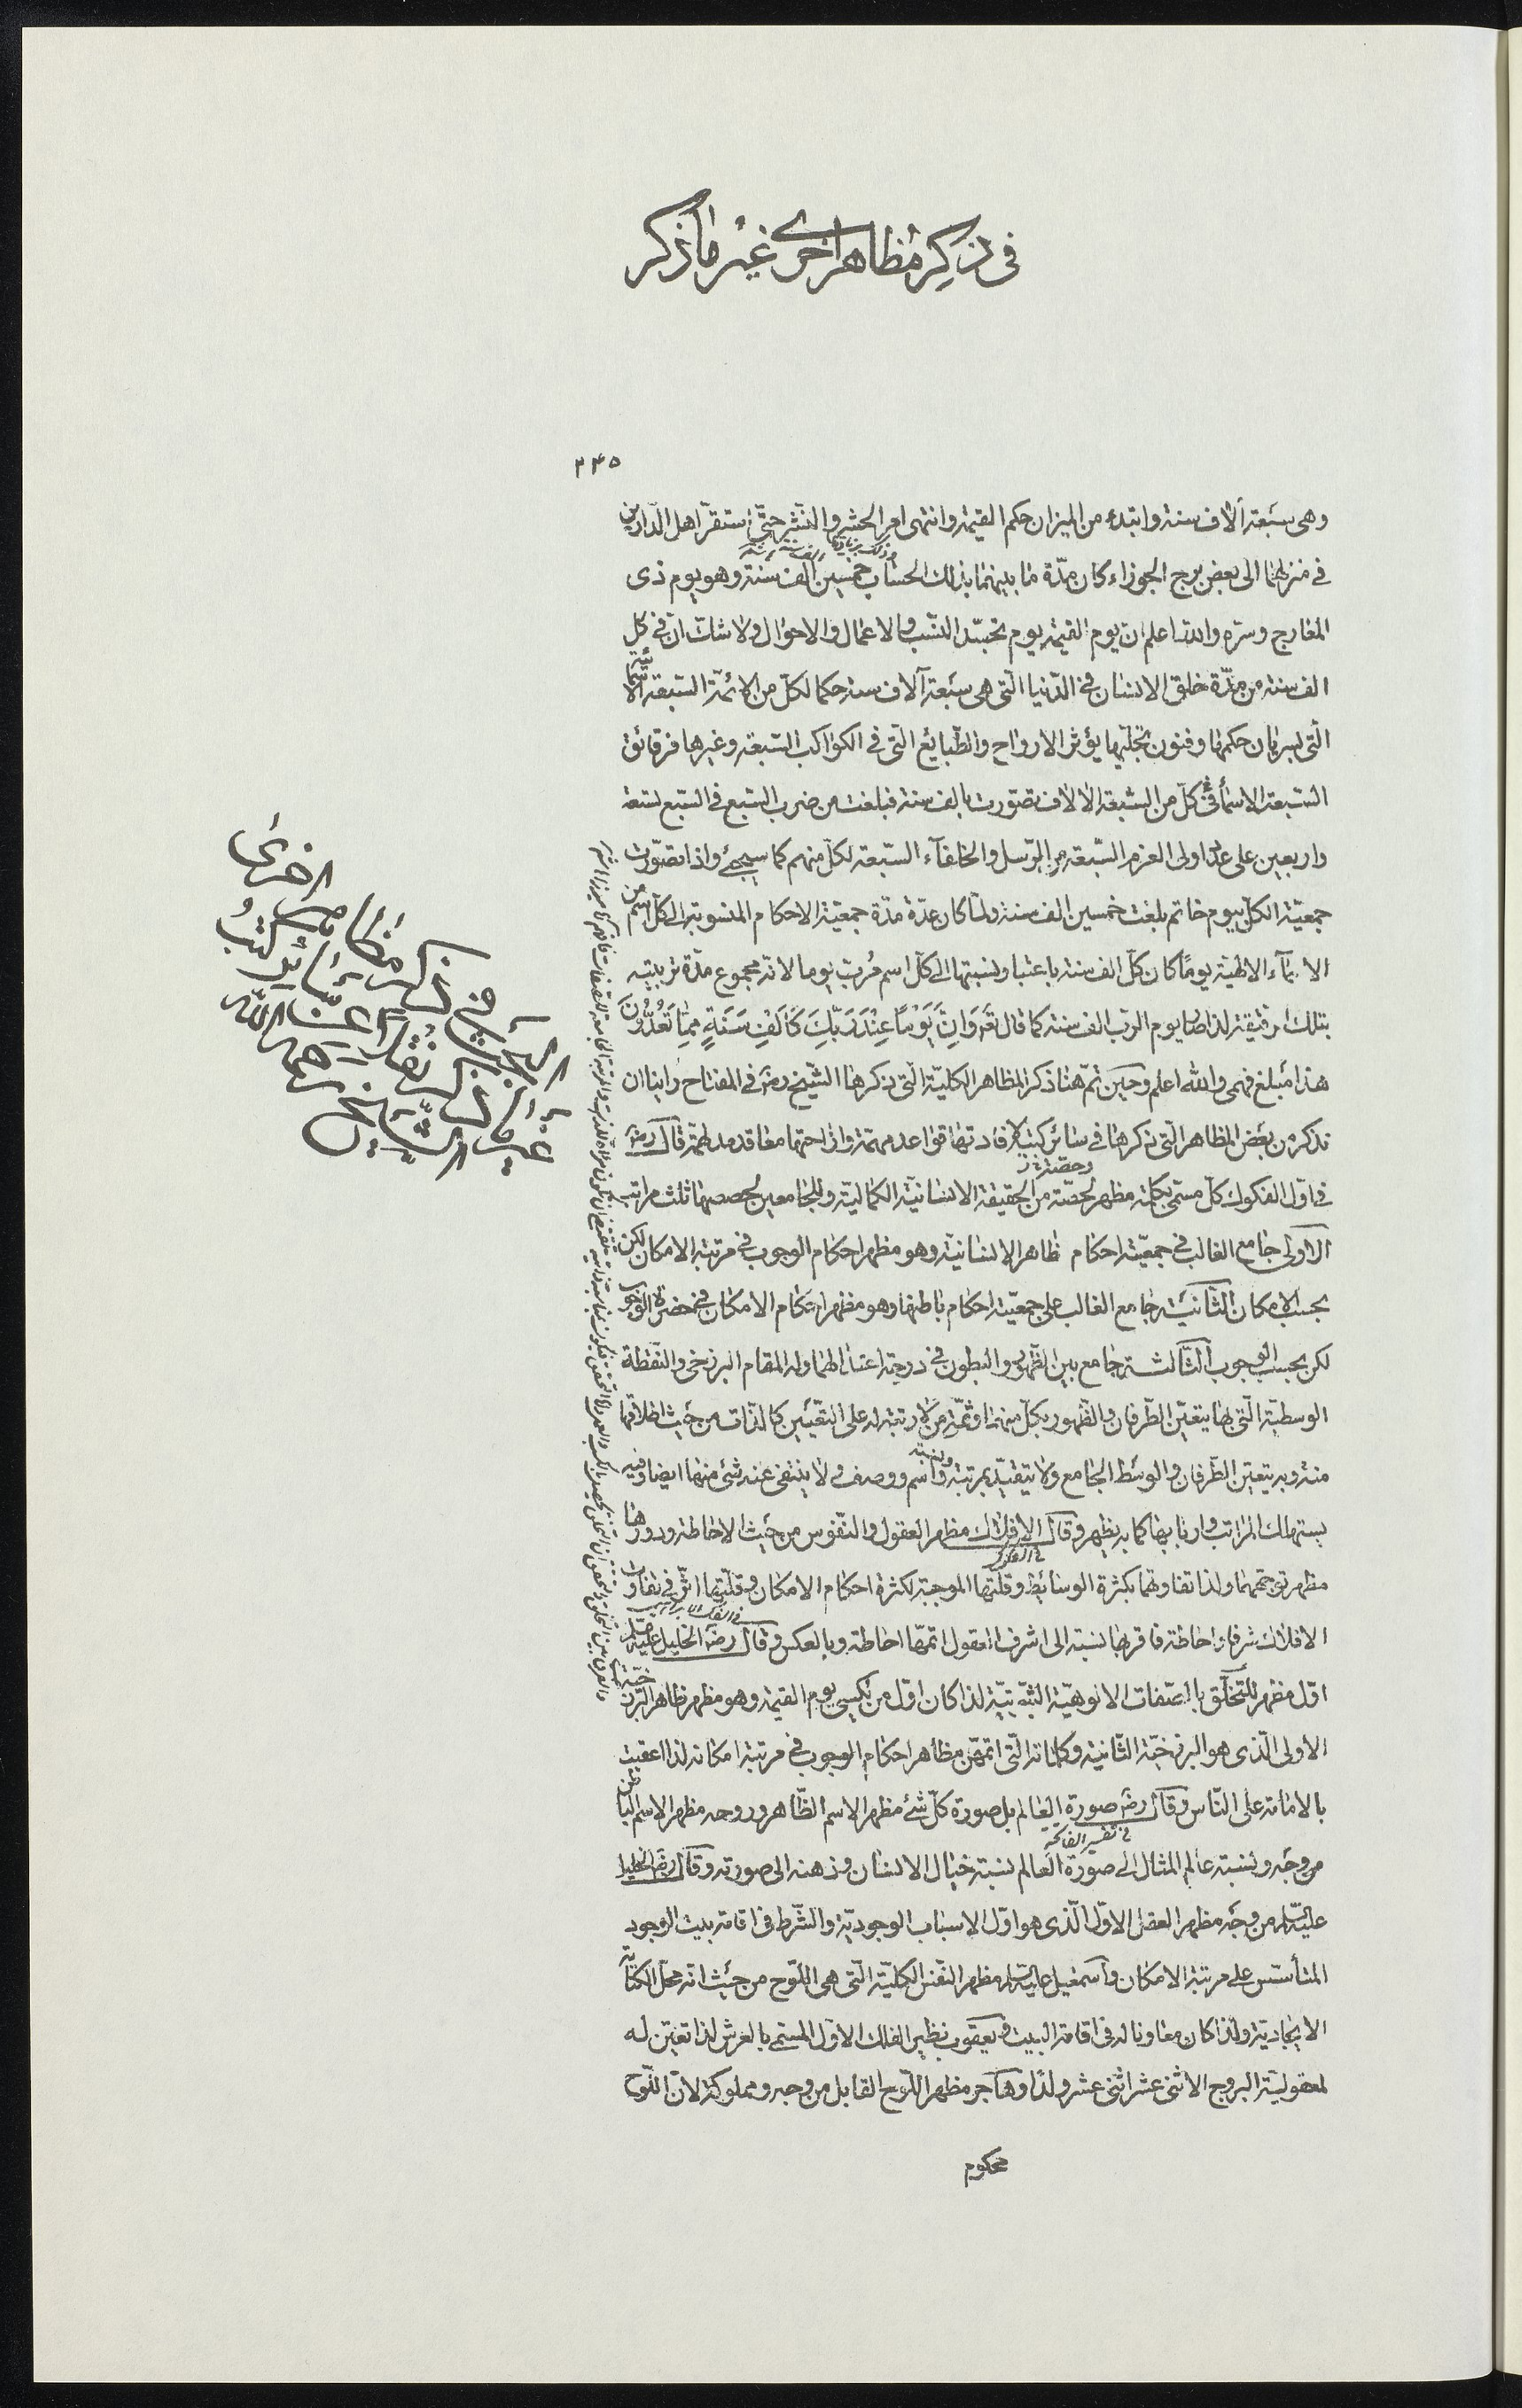 فى ذكر مظاهر اخرى غير ما ذكر
٢۴٥
وهى سبعة آلاف سنة وابتدء من الميزان حكم القيمة وانتهى امر الحشر والنشر حتى استقر اهل الدارين
فى منزلهما الى بعض برج الجوزاء كان مدّة ما بينهما بذلك الحساب خمسين الف سنة وهو يوم ذى
المعارج وسرّه والله اعلم ان يوم القيمة يوم تجسّد النسب والاعمال والاحوال ولا شك ان فى كل
الف سنة من مدّة خلق الانسان فى الدّنيا الّتى هى سبعة آلاف سنة حكما لكلّ من الائمّة السّبعة الاسمائية
الّتى بسريان حكمها وفنون تجلّيها يؤثر الارواح والطّبايع الّتى فى الكواكب السّبعة وغيرها فرقائق
السّبعة الاسمائى فى كلّ من السّبعة الالاف تصوّرت بالف سنة فبلغت من ضرب السّبع فى السّبع تسعة
واربعين على عدد اولى العزم السّبعة من الرّسل والخلفآء السّبعة لكلّ منهم كما سيجئ واذا تصوّرت
جمعيّة الكلّ بيوم خاتم بلغت خمسين الف سنة ولمّا كان عدّة مدّة جمعيّة الاحكام المنسوبة الى كلّ اسم من
الاسمآء الالهيّة يومًا كان كلّ الف سنة باعتبار نسبتها الى كلّ اسم مربّ يوما لانه مجموع مدّة تربيته
بتلك الرقيقة لذا صار يوم الرب الف سنة كما قال تع وَاِنَّ يَوْمًا عِنْدَ رَبِّكَ كَاَلْفِ سَنَةٍ مِمَّا تَعُدُّونَ
هذا مبلغ فهمى والله اعلم وحين تمّ هنا ذكر المظاهر الكليّة الّتى ذكرها الشّيخ رضه فى المفتاح راينا ان
نذكر من بعض المظاهر الّتى ذكرها فى سائر كتبه لافادتها قواعد مهمّة وازاحتها معاقد مدلهمّة قال رضه
فى اوّل الفكوك كلّ مسمّى بكلمة مظهر لحصّة من الحقيقة الانسانيّة الكماليّة وللجامعين لحصصها ثلث مراتب
الاولى جامع الغالب فى جمعيّته احكام ظاهر الانسانية وهو مظهر احكام الوجوب فى مرتبة الامكان لكن
بحسب الامكان الثّانية جامع الغالب على جمعيّته احكام باطنها وهو مظهر احكام الامكان فى حضرة الوجوب
لكن بحسب الوجوب الثّالثة جامع بين الظهور والبطون فى درجة اعتدالهما وله المقام البرزخى والنّقطة
الوسطيّة الّتى بها يتعيّن الطّرفان والظهور بكلّ منهما وثمّة من لا رتبة له على التعيين كالذات من حيث اطلاقها
منه وبه يتعيّن الطّرفان والوسط الجامع ولا يتقيّد بمرتبة واسم ووصف ولا ينتفى عنه شئ منها ايضا وفيه
يستهلك المراتب واربابها كما به يظهر وقال الافلاك مظهر العقول والنّفوس من حيث الاحاطة ودورها
مظهر توجههما ولذا تفاوتها بكثرة الوسائط وقلّتها الموجبة لكثرة احكام الامكان وقلّتها اثّر فى تفاوت
الافلاك شرفا واحاطة فاقربها نسبة الى اشرف العقول اتمّها احاطة وبالعكس وقال رضه الخليل عليه السلم
اوّل مظهر للتخلّق بالصّفات الالوهيّة الثبوتيّة لذا كان اوّل من يكسى يوم القيمة وهو مظهر ظاهر البرزخيّة
الاولى الّذى هو البرزخيّة الثّانية وكلماته الّتى اتمهنّ مظاهر احكام الوجوب فى مرتبة امكانه لذا اعقبت
بالامامة على النّاس وقال رضه صورة العالم بل صورة كلّ شئ مظهر الاسم الظّاهر وروحه مظهر الاسم الباطن
من وجه ونسبة عالم المثال الى صورة العالم نسبة خيال الانسان وذهنه الى صورته وقال رضه الخليل
عليه السلم من وجه مظهر العقل الاوّل الّذى هو اوّل الاسباب الوجوديّة والشّرط فى اقامة بيت الوجود
المتأسّس على مرتبة الامكان واسمعيل عليه السلم مظهر النّفس الكليّة الّتى هى اللّوح من حيث انه محلّ الكتابة
الايجاديّة ولذا كان معاونا له فى اقامة البيت ويعقوب نظير الفلك الاوّل المسمّى بالعرش لذا تعيّن له
لمعقوليّة البروج الاثنى عشر اثنى عشر ولدا وهاجر مظهر اللّوح القابل من وجه ومملوكة لانّ اللّوح
محكوم
البحث فى ذكر مظاهر اخرى
غير ما ذكر نقلا عن سائر كتب
الشيخ رحمه الله